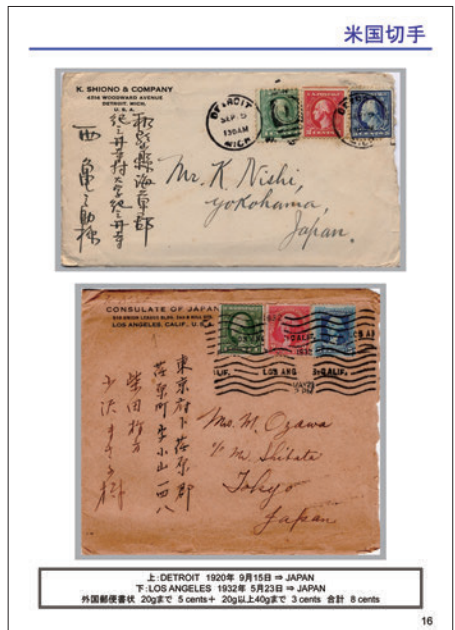 米国切手
K. SHIONO & COMPANY
4214 WOODWARD AVENUE
DETROIT, MICH.
U. S. A.
DETROIT
SEP. 
130AM
MICH.
和歌山縣海草郡
紀三井寺村大字紀三井寺
西 亀之助様
Mr. K. Nishi,
Yokohama,
Japan.
CONSULATE OF JAPAN
LOS ANGELES, CALIF., U.S.A.
LOS ANG
CALIF.
東京府下荏原郡
荏原町字小山一四八
柴田様方
小沢ます子様
Mrs. M. Ozawa
c/o Mr. Shibata
Tokyo
Japan
上:DETROIT 1920年 9月15日 ⇒ JAPAN
下:LOS ANGELES 1932年 5月23日 ⇒ JAPAN
外国郵便書状 20gまで 5 cents+ 20g以上40gまで 3 cents 合計 8 cents
16